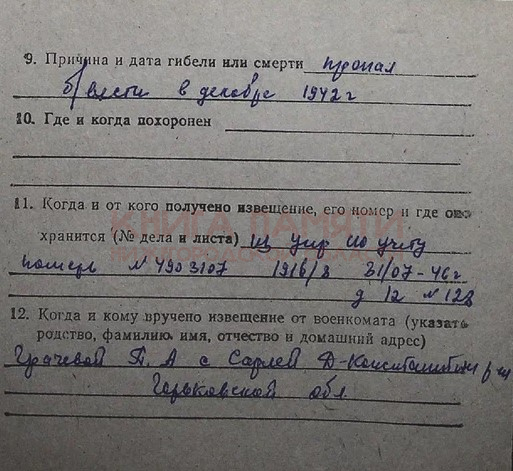 9. Причина и дата гибели или смерти пропал
б/вести в декабре 1942 г
10. Где и когда похоронен
11. Когда и от кого получено извещение, его номер и где оно
КНИГА ПАМЯТИ
хранится (№ дела и листа) из упр по учету
потерь №4903107 1916/8 31/07-46 г
д 12 №128
12. Когда и кому вручено извещение от военкомата (указать
родство, фамилию, имя, отчество и домашний адрес)
Грачевой П. А с Сарлей Д-Константин р-н
Горьковской обл.